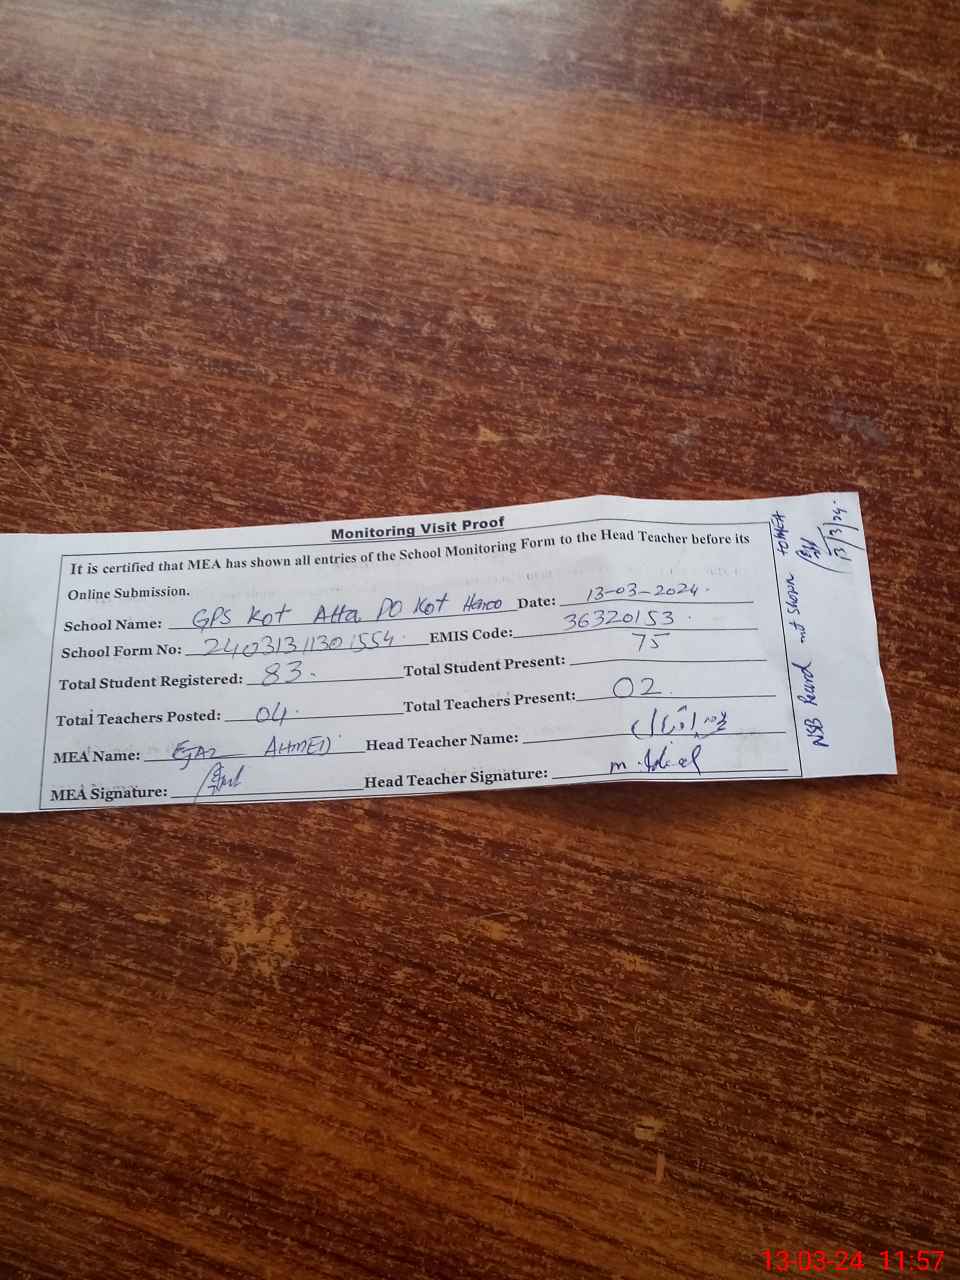 Monitoring Visit Proof
It is certified that MEA has shown all entries of the School Monitoring Form to the Head Teacher before its
Online Submission.
School Name: GPS Kot Atta PO Kot Date: 13-03-2024.
School Form No: EMIS Code: 36320153.
Total Student Registered: 83. Total Student Present: 75
Total Teachers Posted: 04. Total Teachers Present: 02.
MEA Name: EJAZ AHMED Head Teacher Name:
MEA Signature: Head Teacher Signature:
NSB Record not shown to MEA
13/3/24.
13-03-24 11:57